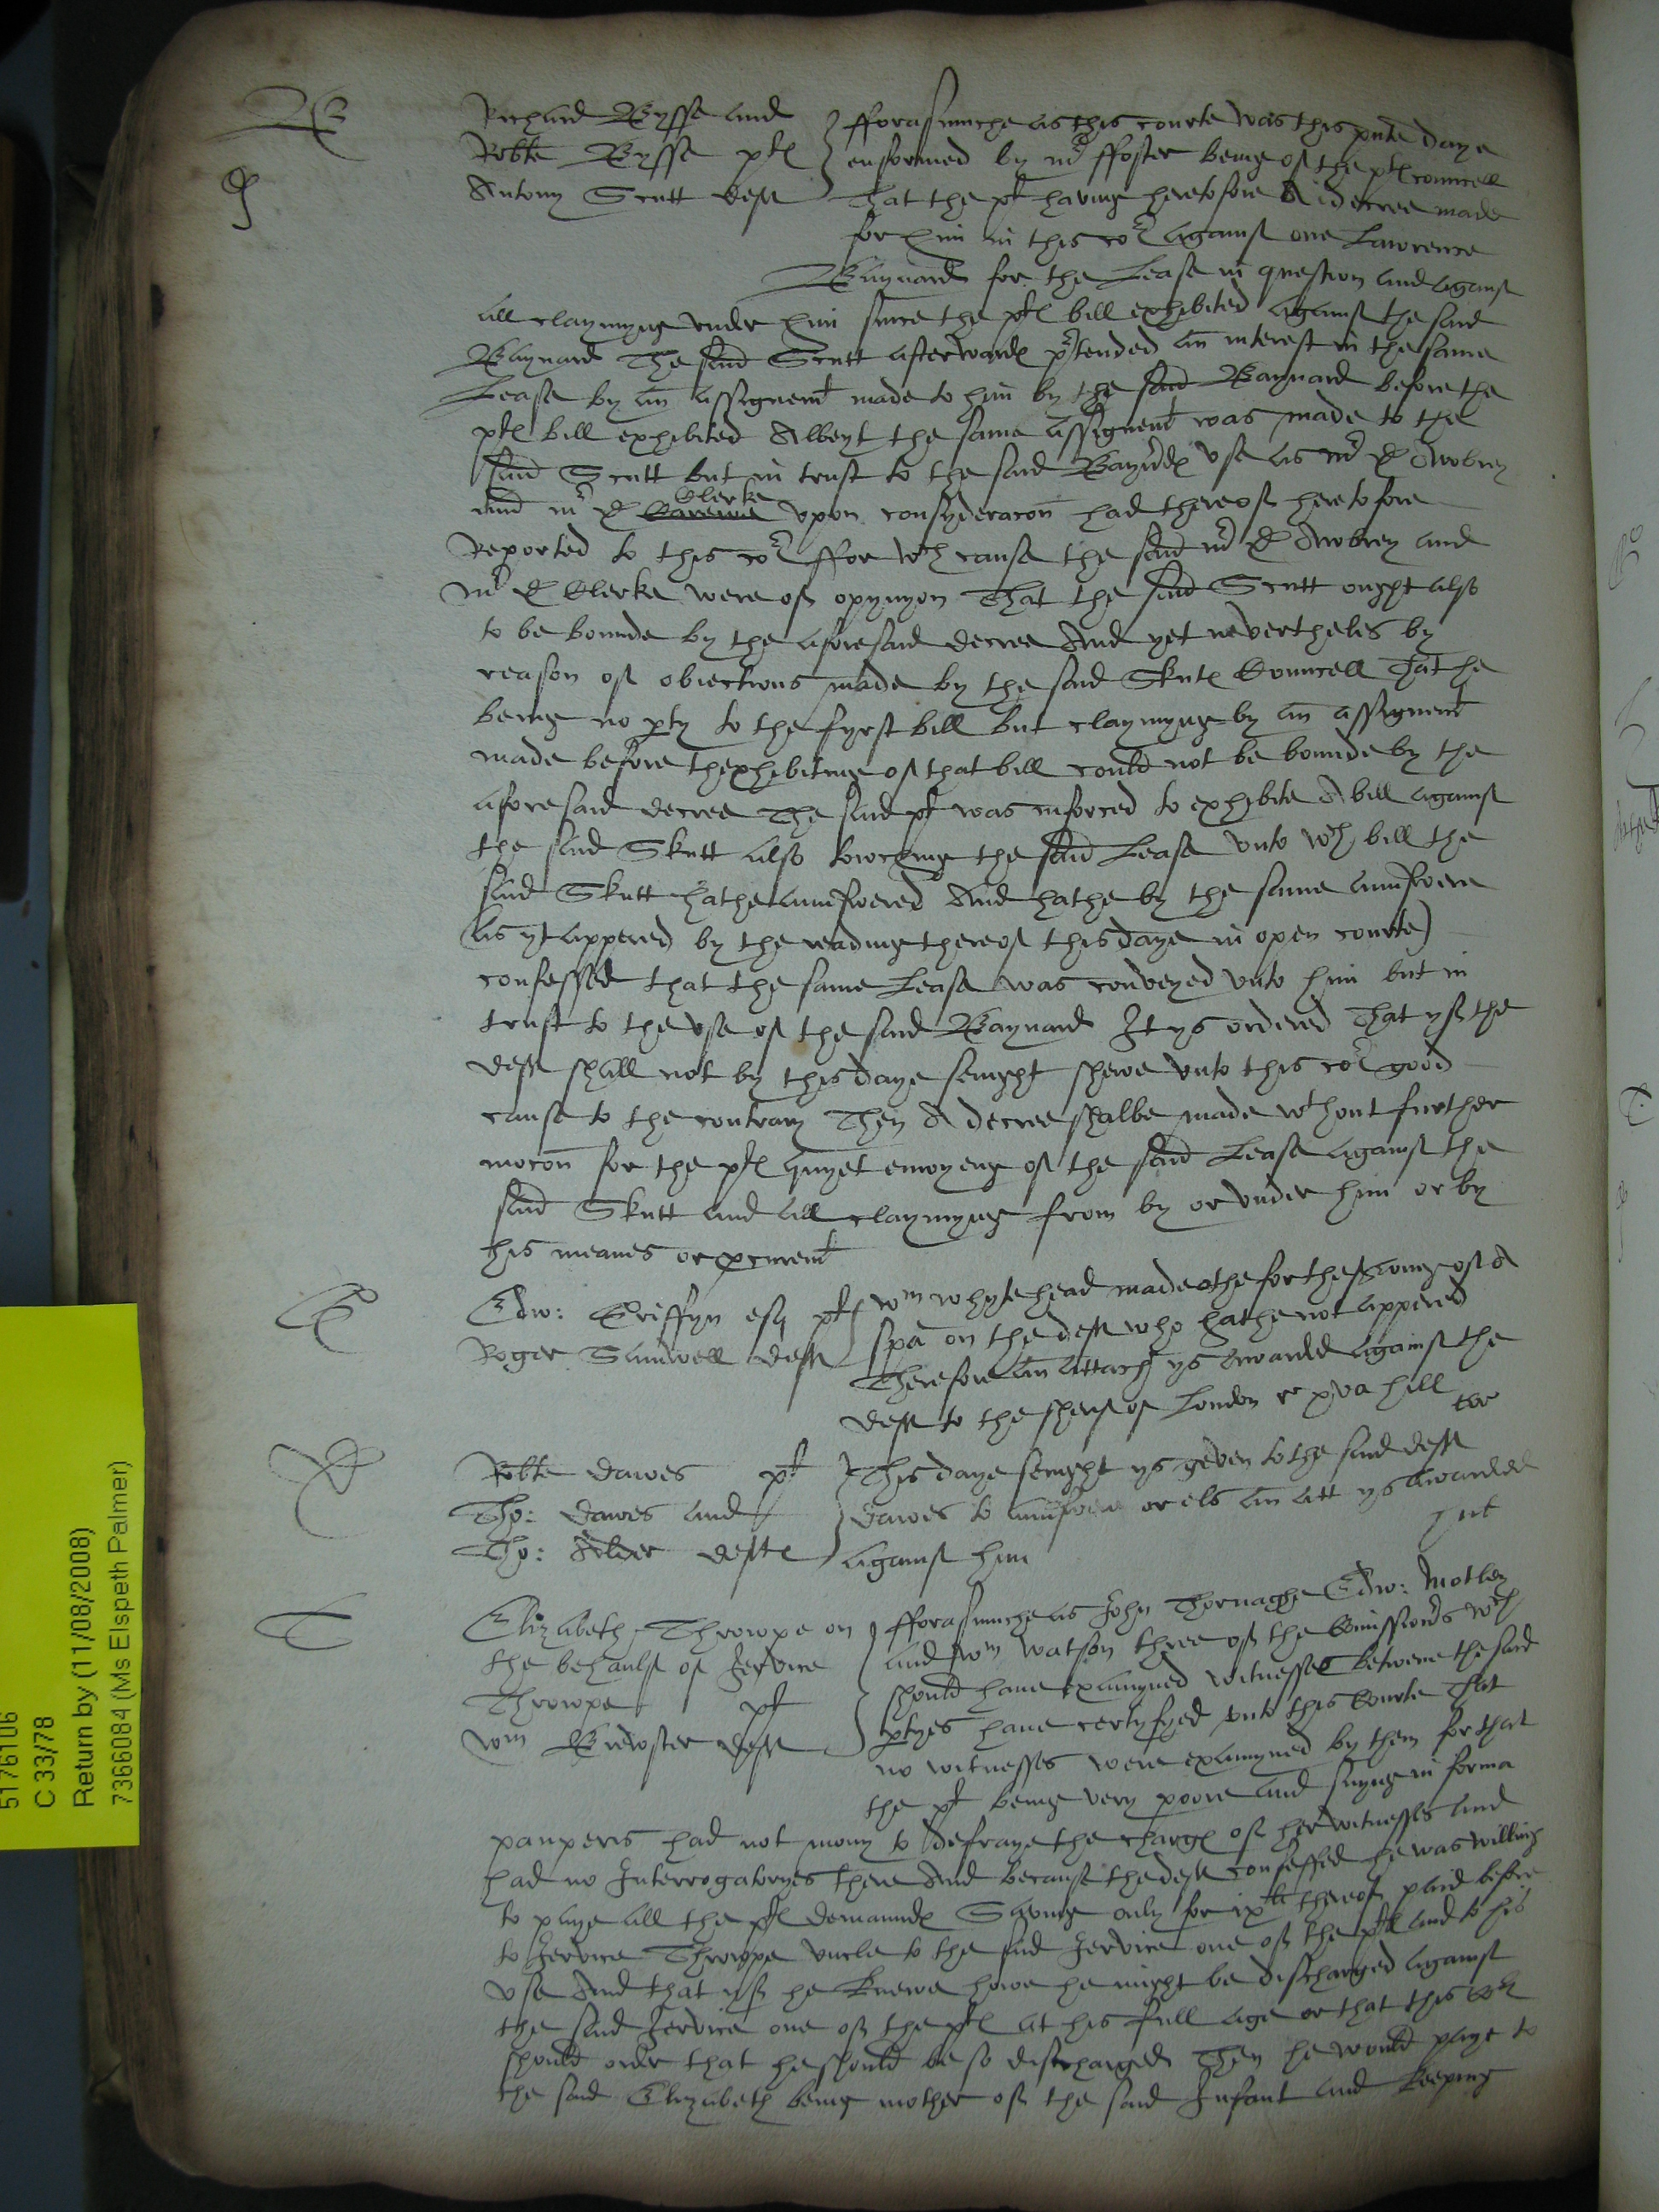 Richard Bysse and } fforasmuche as this courte was this pnte daye
Robte Bysse pl } enformed by mr ffoster being of the pl councell
Antony Scutt deft That the pt having heretofore A decree made
for him in this cot against one Lawrence
Baynard for the Lease in question and against
all claymyng vnder him since the pl bill exhibited against the said
Baynard The said Scutt afterward ptended an interest in the same
Lease by an assignemt made to him by the said Baynard before the
pl bill exhibited Albeyt the same assignemt was made to the
said Scutt but in trust to the said Baynd vse as mr D Awbrey
and mr D Clerke vpon consyderacon had thereof heretofore
Reported to this cot ffor wch cause the said mr D Awbrey and
mr D Clerke were of opynyon That the said Scutt ought also
to be bounde by the aforesaid decree And yet nevertheles by
reason of obiections made by the said Skut Councell That he
being no pty to the fyrst bill but claymyng by an assignemt
made before thexhibiting of that bill could not be bounde by the
aforesaid decree The said pt was inforced to exhibite A bill against
the said Skutt also towching the said Lease vnto wch bill the
said Skutt hathe aunswered And hathe by the same aunswere
(as yt appered by the reading thereof this daye in open courte)
confessed that the same Lease was conveyed vnto him but in
trust to the vse of the said Baynard It ys ordered That yf the
deft shall not by this daye senight shewe vnto this cot good
cause to the contrary Then A decree shalbe made wthout further
mocon for the pl quyet enioyeng of the said Lease against the
said Skutt and all claymyng from by or vnder him or by
his meanes or pcuremt
Edw: Griffyn esq pt } Wm whytehead made othe for the serving of A
Roger Samwell deft } spa on the deft who hathe not appered
Therefore an attach ys awarded against the
deft to the sheref of London
Robte Dawes pt } This daye senight ys geven to the said deft
Tho: Dawes and } Dawes to aunswere or els an att ys awarded
Tho: Alder deft } against him
Elizabeth Throwpe on } fforasmuche as John Thornaghe Edw: Motley
the behaulf of Jervice } and Wm Watson three of the Comissions wch
Throwpe pt } should have examyned witnesses betwene the said
Wm Brewster deft } ptyes have certyfyed vnto this Courte That
no witnesses were examyned by them for that
the pt being very poore and suyng in forma
pauperis had not mony to defraye the charg of her witnesses and
had no Interrogatoryes there And because the deft confessed he was willing
to paye all the pl demaund Saving only for ixli thereof paid before
to Jervice Throwpe vncle to the said Jervice one of the pl and to his
vse And that yf he knewe howe he might be discharged against
the said Jervice one of the pl at his full age or that this Cot
should order that he should be so discharged Then he would paye to
the said Elizabeth being mother of the said Infant and keeping
5176106
C 33/78
Return by (11/08/2008)
7366084 (Ms Elspeth Palmer)